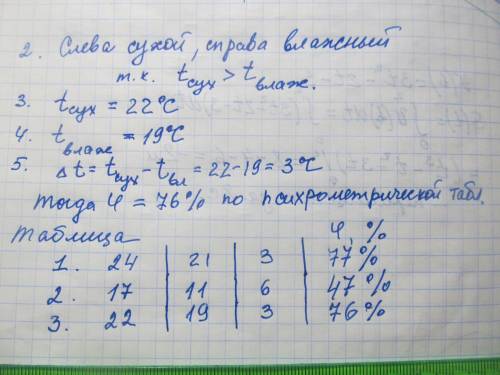 2. Слева сухой, справа влажный
т.к. tсух > tвлаж.
3. tсух = 22°C
4. tвлаж = 19°C
5. Δt = tсух - tвл = 22-19 = 3°C
Тогда φ = 76% по психрометрической табл.
Таблица φ, %
1. 24 | 21 | 3 | 77%
2. 17 | 11 | 6 | 47%
3. 22 | 19 | 3 | 76%